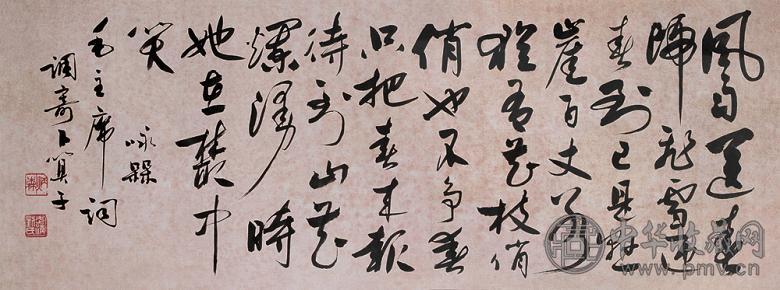 風雨送春
歸飛雪迎
春到已是懸
崖百丈冰
猶有花枝俏
俏也不爭春
只把春來報
待到山花
爛漫時
她在叢中
笑 詠槑
毛主席詞
調寄卜算子
中华收藏网
www.pmv.cn